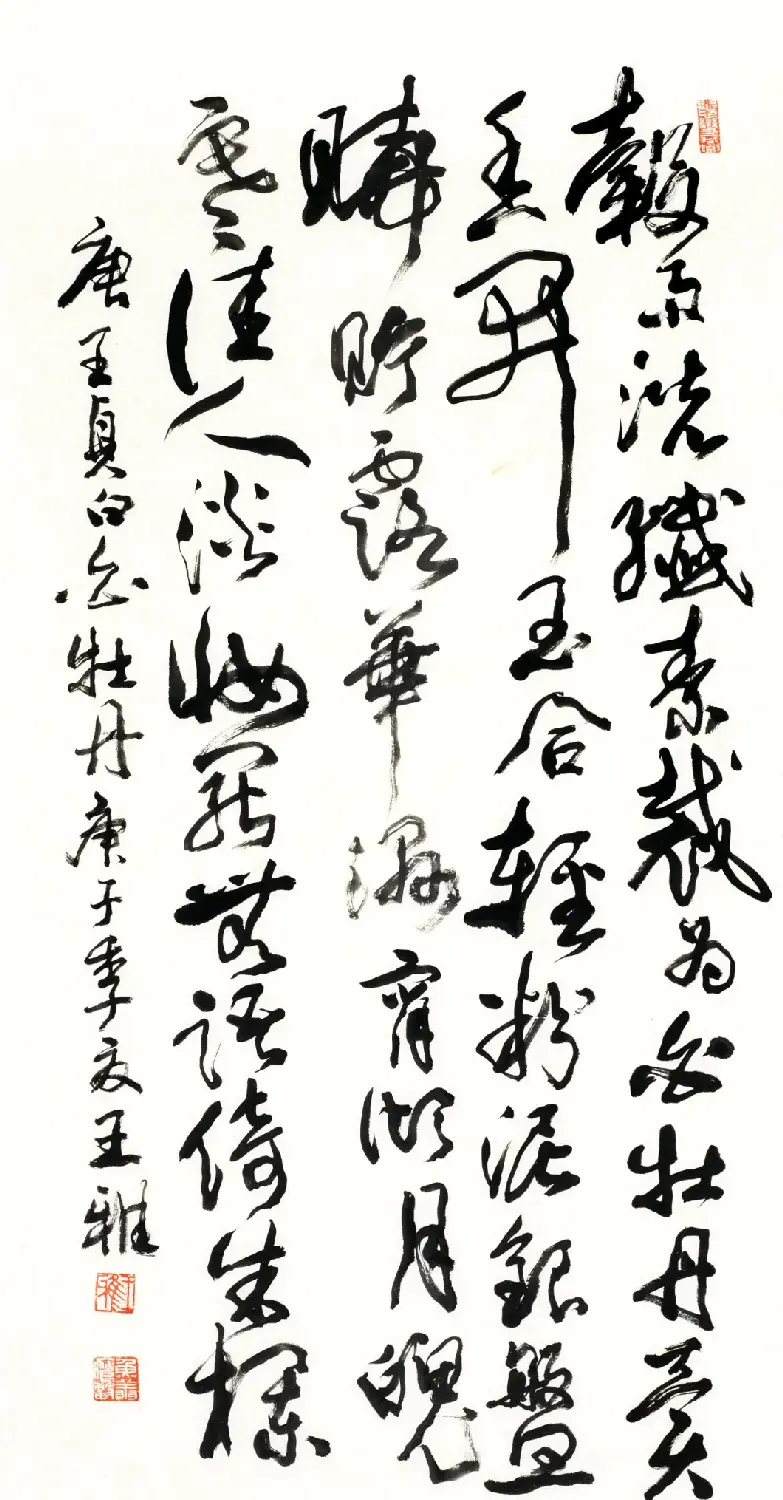 穀雨洗纖素裁為白牡丹異
香開玉合輕粉泥銀盤
曉貯露華濕宵傾月魄
寒佳人淡妝罷無語倚朱欄
唐王貞白白牡丹庚子季夏王雅